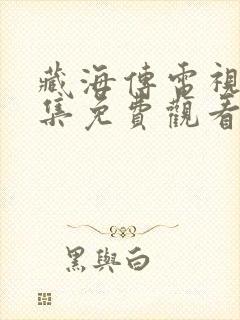 藏海傳電視
集免費觀看
黑與白